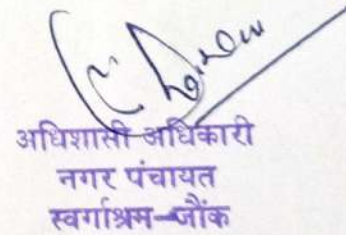 अधिशासी अधिकारी
नगर पंचायत
स्वर्गाश्रम-जौंक